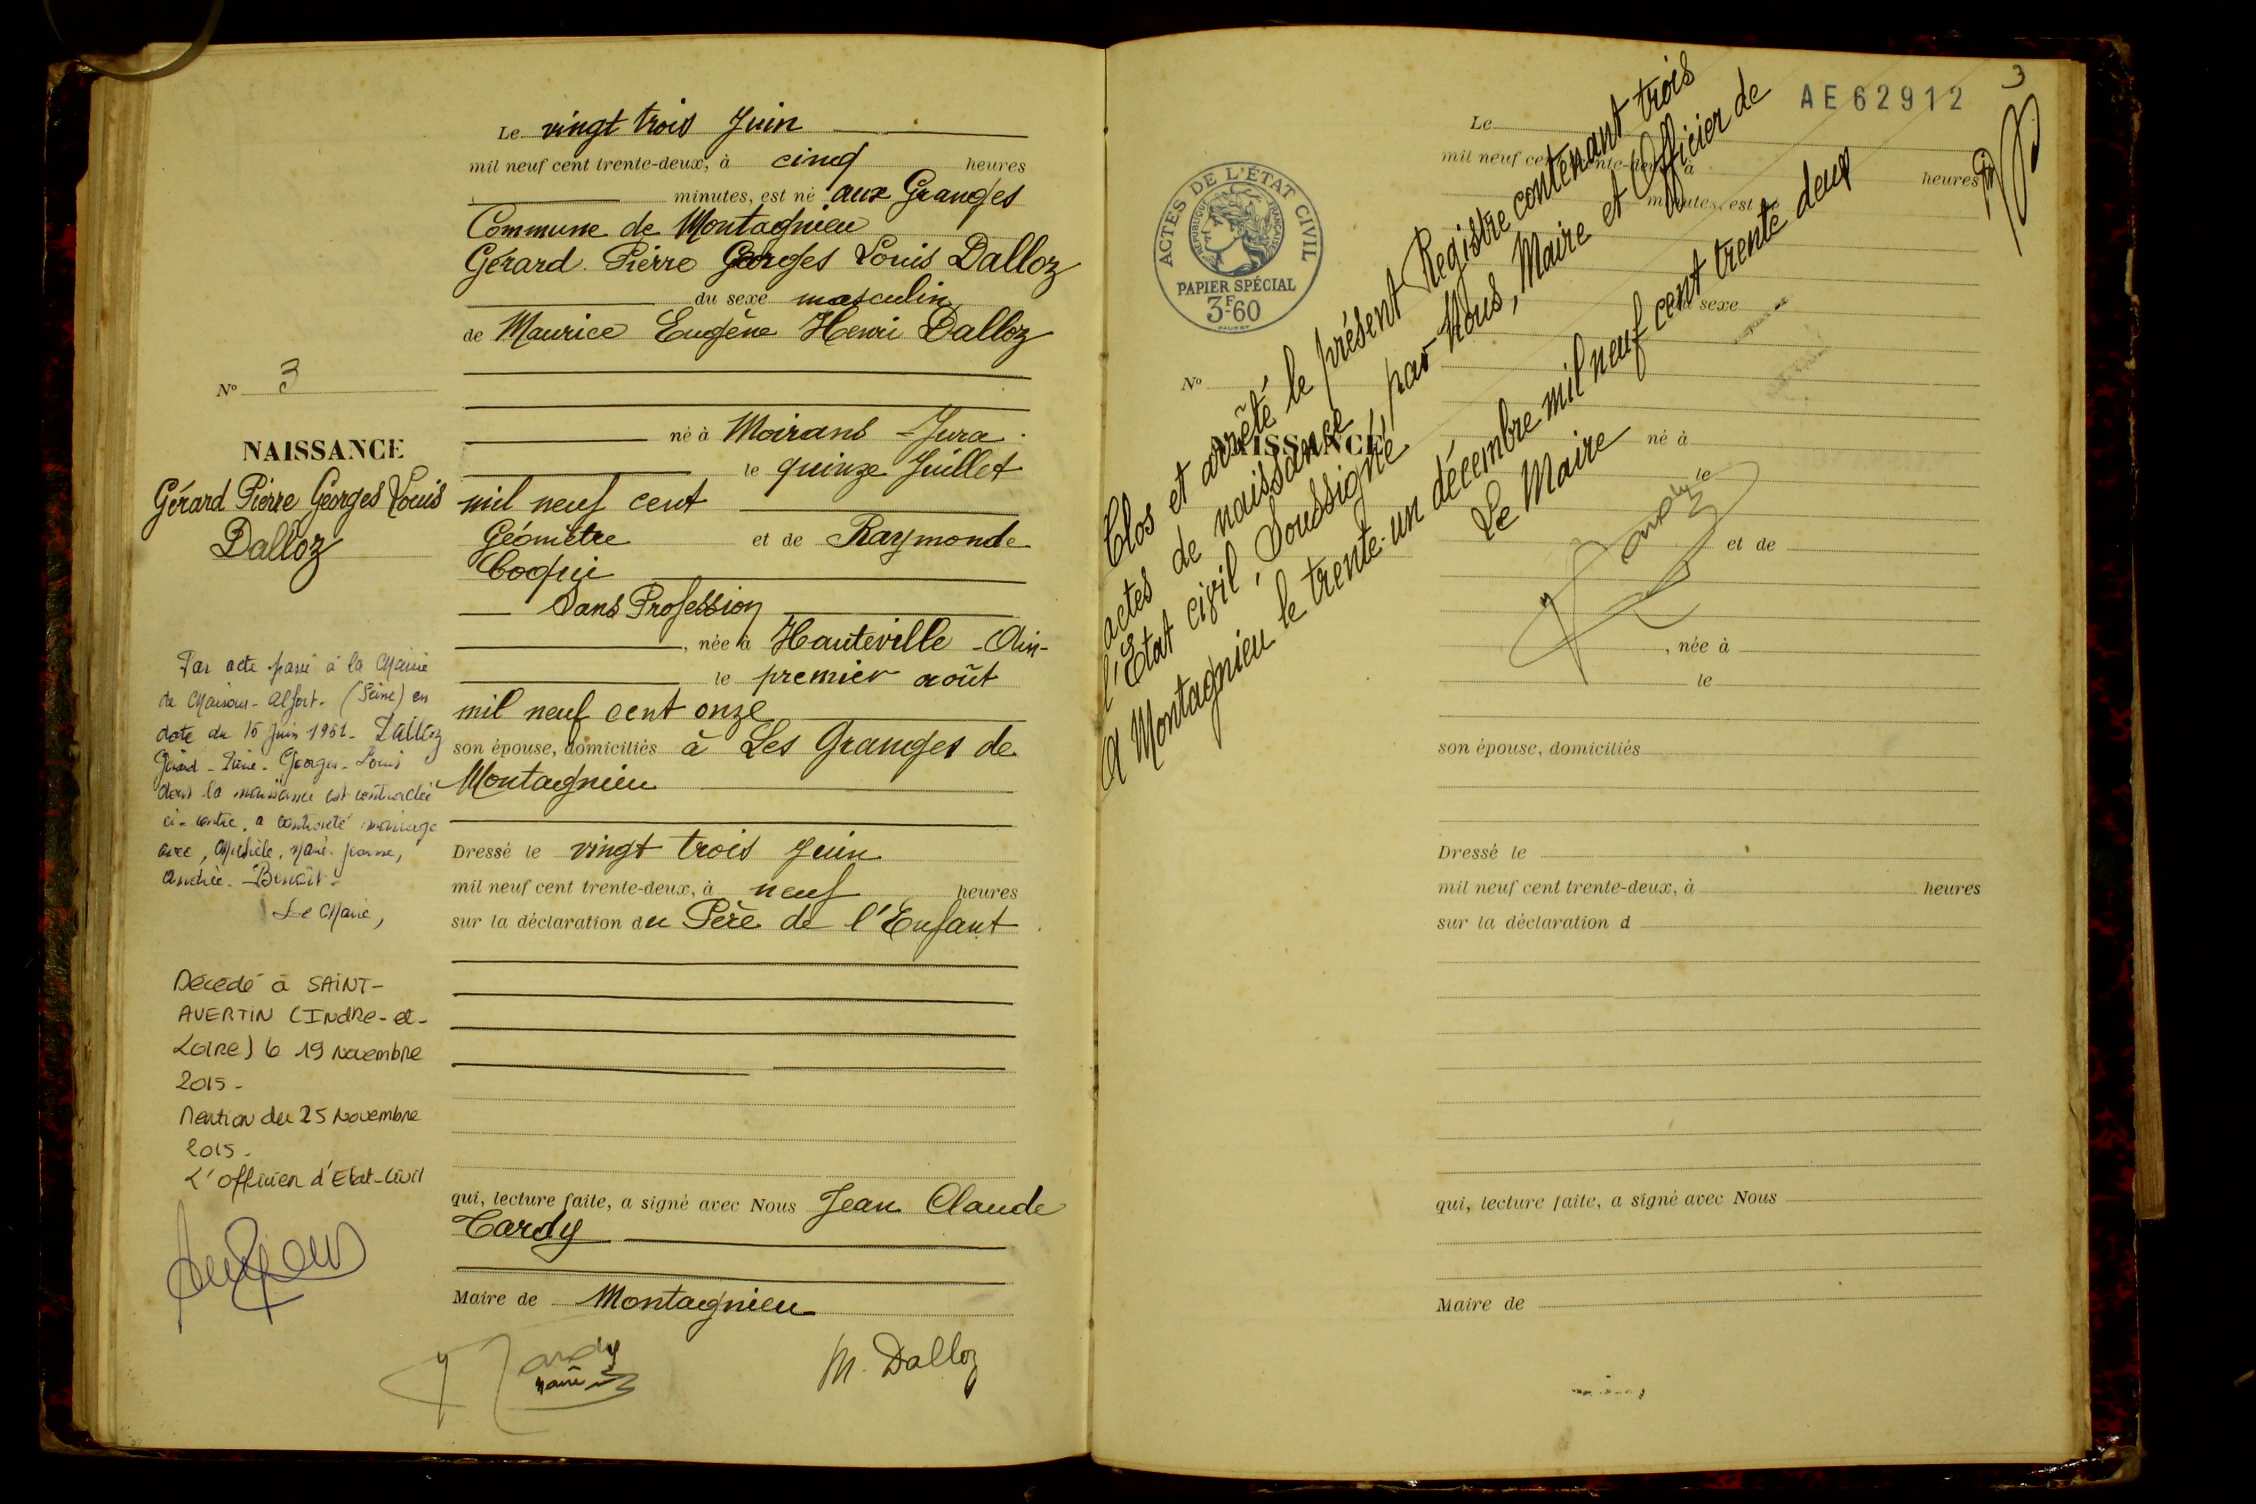 Le vingt trois Juin
mil neuf cent trente-deux, à cinq heures
minutes, est né aux Granges
Commune de Montagnieu
Gérard Pierre Georges Louis Dalloz
du sexe masculin
de Maurice Eugène Henri Dalloz
né à Moirans - Jura.
le quinze Juillet
mil neuf cent
Géomètre et de Raymonde
Coqui
Sans Profession
, née à Hauteville - Ain -
le premier août
mil neuf cent onze
son épouse, domiciliés à Les Granges de
Montagnieu
Dressé le vingt trois Juin
mil neuf cent trente-deux, à neuf heures
sur la déclaration du Père de l'Enfant
qui, lecture faite, a signé avec Nous Jean Claude
Tardy
Maire de Montagnieu
Tardy
Maire
M. Dalloz
N° 3
NAISSANCE
Gérard Pierre Georges Louis
Dalloz
Par acte passé à la Mairie
de Maisons-Alfort. (Seine) en
date du Juin Dalloz
Gérard - Pierre - Georges - Louis
dont la naissance est contractée
ci-contre, a contracté mariage
avec, Michèle, Marie-Jeanne,
Andrée - Benoît -
Le Maire,
Décédé à SAINT-
AVERTIN (INDRE-et-
LOIRE) le 19 Novembre
2015 -
Mention du 25 Novembre
2015 -
L'officier d'Etat-Civil
3
AE62912
ACTES DE L'ÉTAT CIVIL
RÉPUBLIQUE FRANÇAISE
PAPIER SPÉCIAL
3F60
Clos et arrêté le présent Registre contenant trois
actes de naissance, par Nous, Maire et Officier de
l'État civil, Soussigné
A Montagnieu le trente-un décembre mil neuf cent trente deux
Le Maire
Tardy
Le
mil neuf cent trente-deux, à heures
minutes, est né
du sexe
N°
NAISSANCE
né à
le
et de
, née à
le
son épouse, domiciliés
Dressé le
mil neuf cent trente-deux, à heures
sur la déclaration d
qui, lecture faite, a signé avec Nous
Maire de